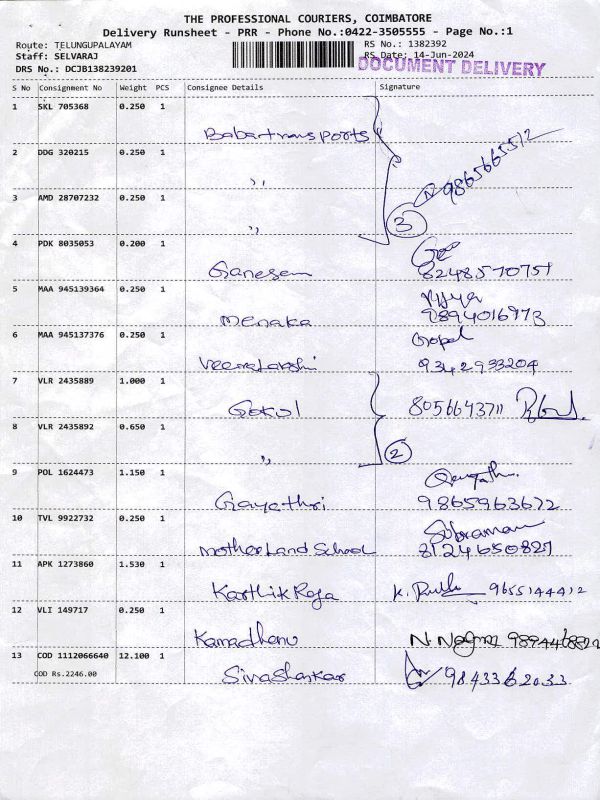 THE PROFESSIONAL COURIERS, COIMBATORE
Delivery Runsheet - PRR - Phone No.:0422-3505555 - Page No.:1
Route: TELUNGUPALAYAM RS No.: 1382392
Staff: SELVARAJ RS Date: 14-Jun-2024
DRS No.: DCJB138239201 DOCUMENT DELIVERY
S No Consignment No Weight PCS Consignee Details Signature
1 SKL 705368 0.250 1
Babartransports
2 DDG 320215 0.250 1
,, 9865665512
3 AMD 28707232 0.250 1
,, 3
4 PDK 8035053 0.200 1
Ganesan 8248570751
5 MAA 945139364 0.250 1
Menaka 9894016973
6 MAA 945137376 0.250 1 Gopal
Veeralakshi 9342933204
7 VLR 2435889 1.000 1
Gokul 8056643711
8 VLR 2435892 0.650 1
,, 2
9 POL 1624473 1.150 1
Gayathri 9865963672
10 TVL 9922732 0.250 1 Subraman
Motherland School 8124650827
11 APK 1273860 1.530 1
Karthik Raja 9655144412
12 VLI 149717 0.250 1
Kamadhenu
13 COD 1112066640 12.100 1
COD Rs.2246.00 Sivashankar 9843362033